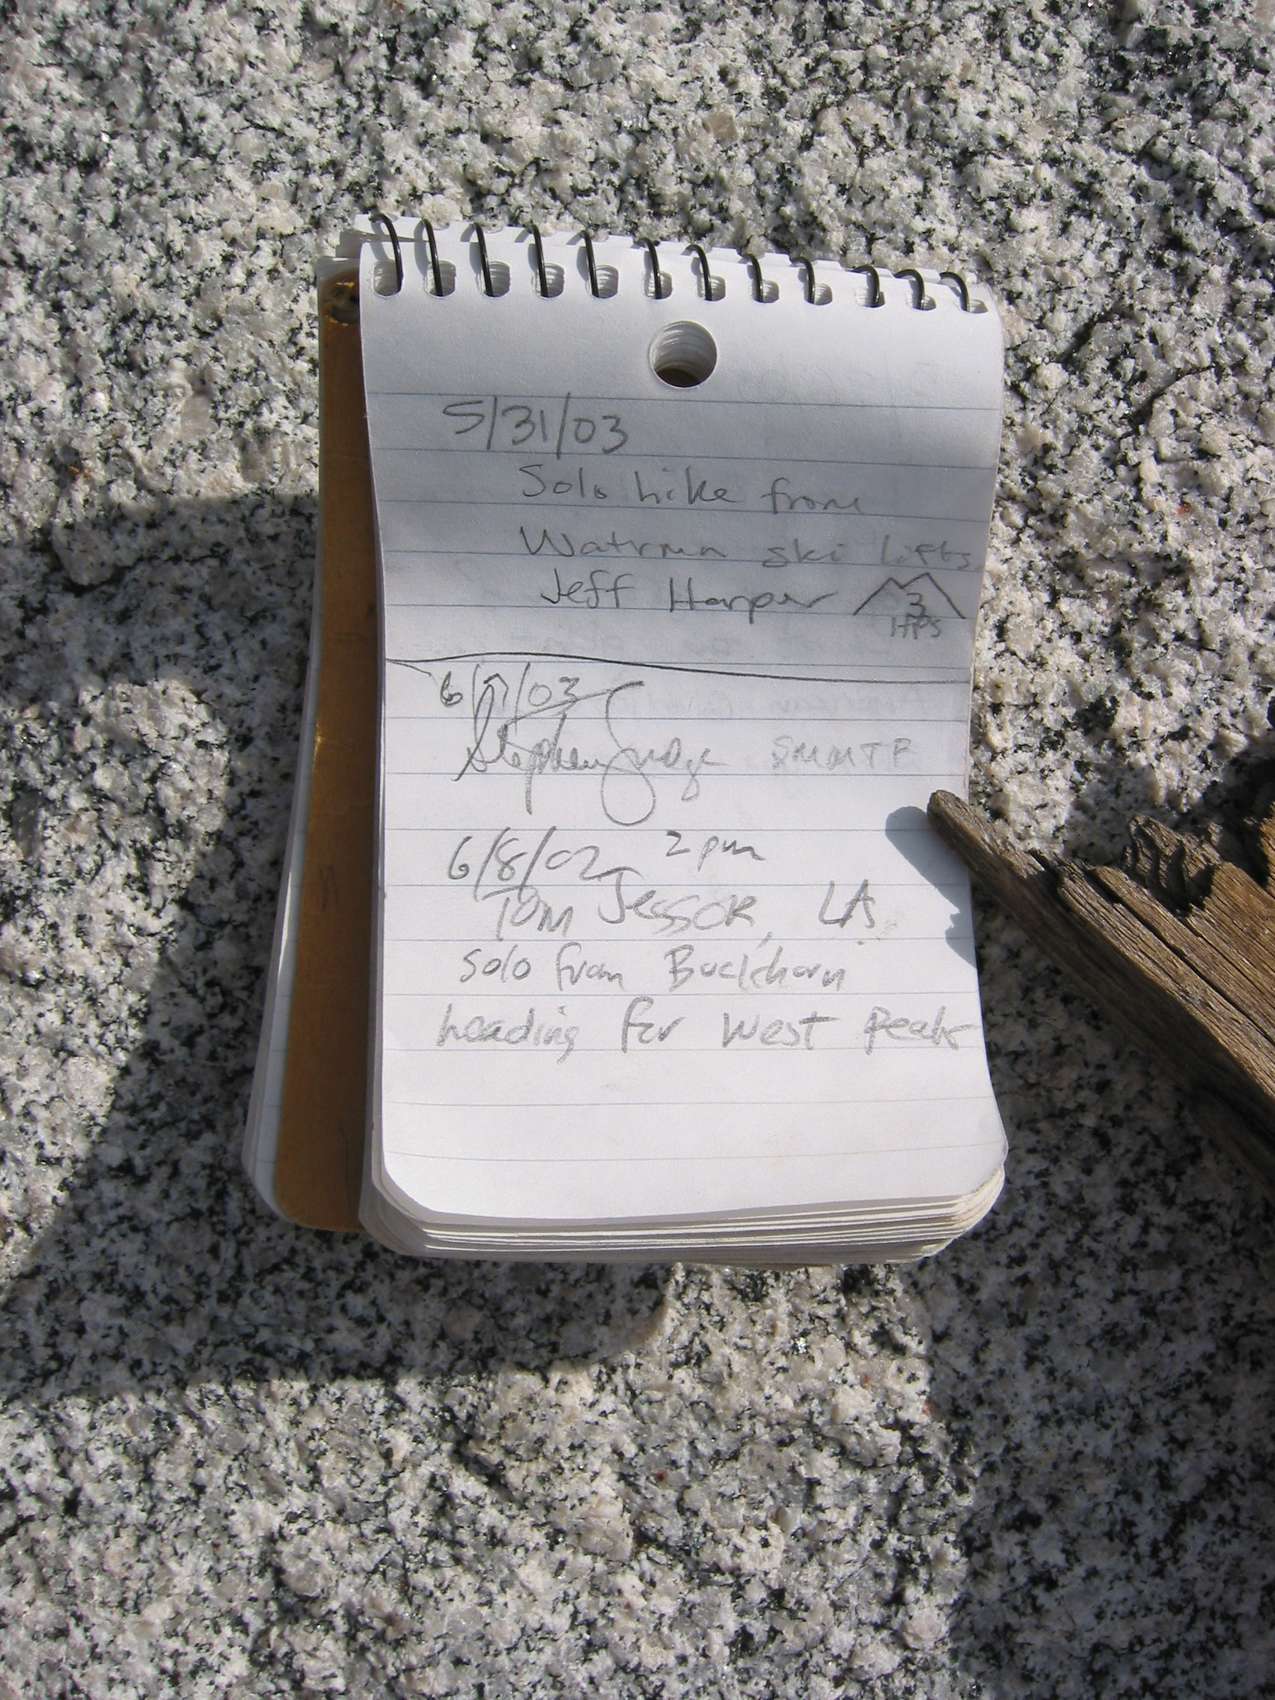 5/31/03
Solo hike from
Watrmn ski lifts
Jeff Harper 3
HPS
6/7/03
Stephen Judge
6/8/02 2pm
Tom Jessor, LA
solo from Buckhorn
heading for West Peak